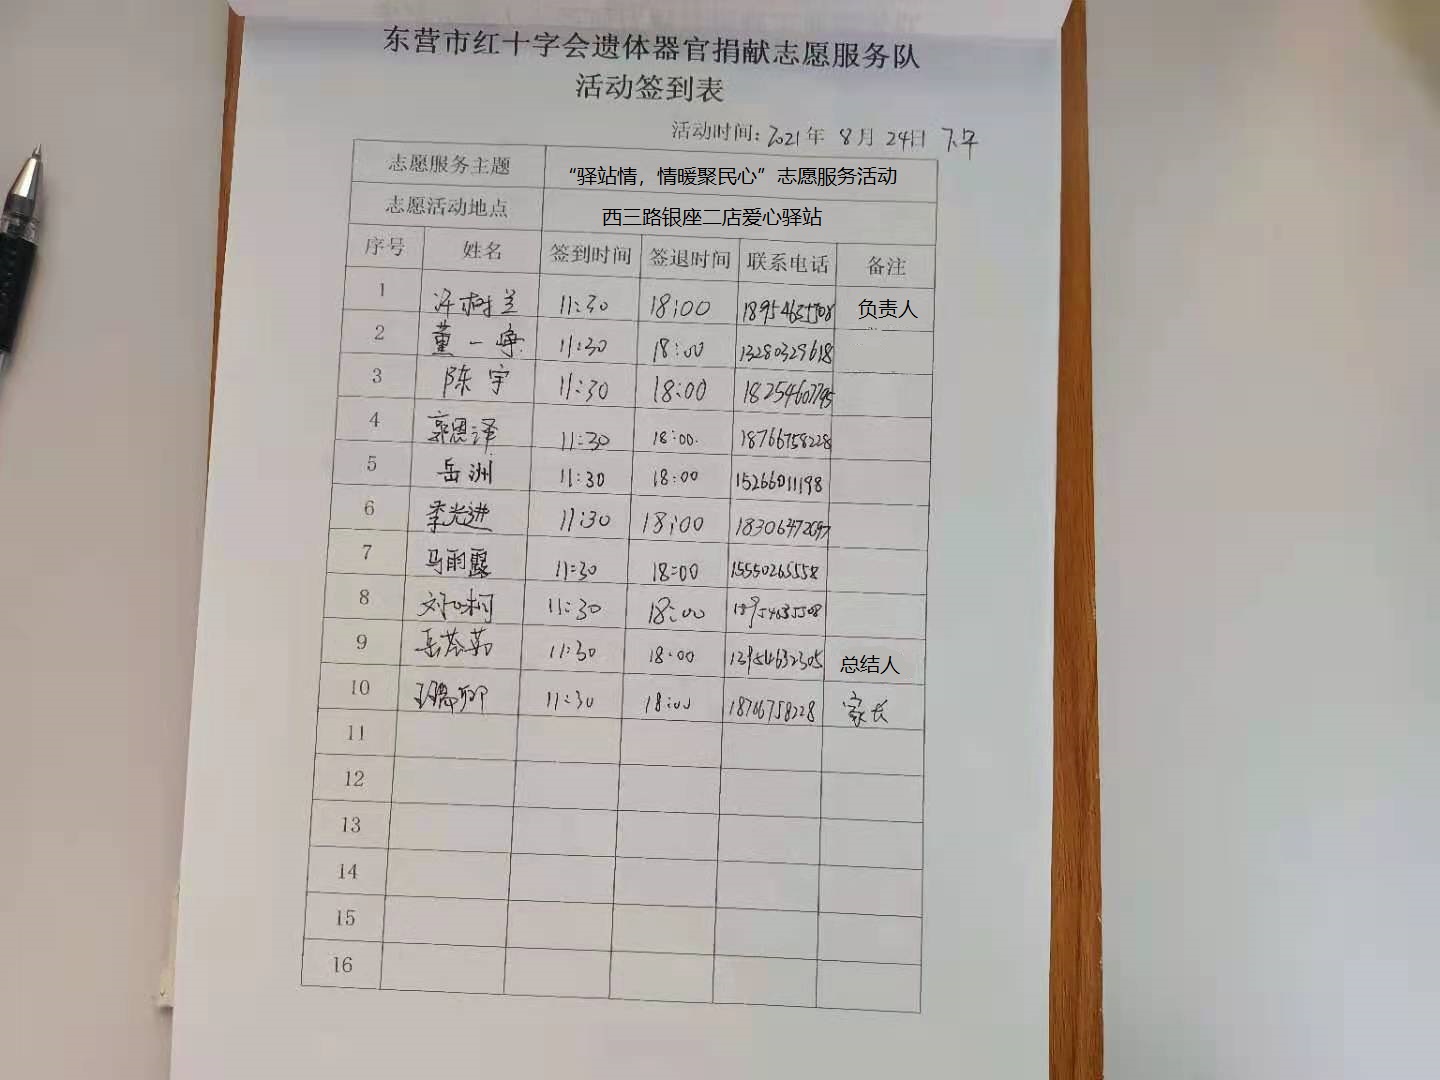 东营市红十字会遗体器官捐献志愿服务队
活动签到表
活动时间：2021年 8月 24日 下午
志愿服务主题 “驿站情，情暖聚民心”志愿服务活动
志愿活动地点 西三路银座二店爱心驿站
序号 姓名 签到时间 签退时间 联系电话 备注
1 许树兰 11:30 18:00 18954635508 负责人
2 董一峥 11:30 18:00 13280329618
3 陈宇 11:30 18:00 18254607795
4 郭恩泽 11:30 18:00. 18766758228
5 岳洲 11:30 18:00 15266011198
6 李光进 11:30 18:00 18306472097
7 马雨露 11:30 18:00 15550265558
8 11:30 18:00
9 11:30 18:00 13954632305 总结人
10 11:30 18:00 18766758228 家长
11
12
13
14
15
16